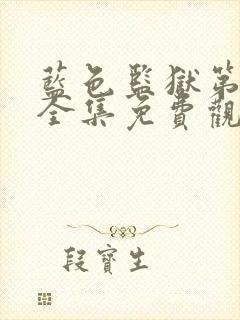 藍色監獄第
全集免費觀
段寶生